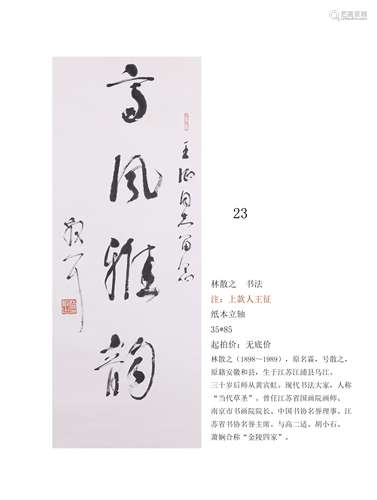 高风雅韵
王征同志留念
散耳
23
林散之 书法
注：上款人王征
纸本立轴
35*85
起拍价：无底价
林散之（1898～1989），原名霖，号散之，
原籍安徽和县，生于江苏江浦县乌江，
三十岁后师从黄宾虹。现代书法大家，人称
“当代草圣”。曾任江苏省国画院画师、
南京市书画院院长、中国书协名誉理事、江
苏省书协名誉主席。与高二适、胡小石、
萧娴合称“金陵四家”。